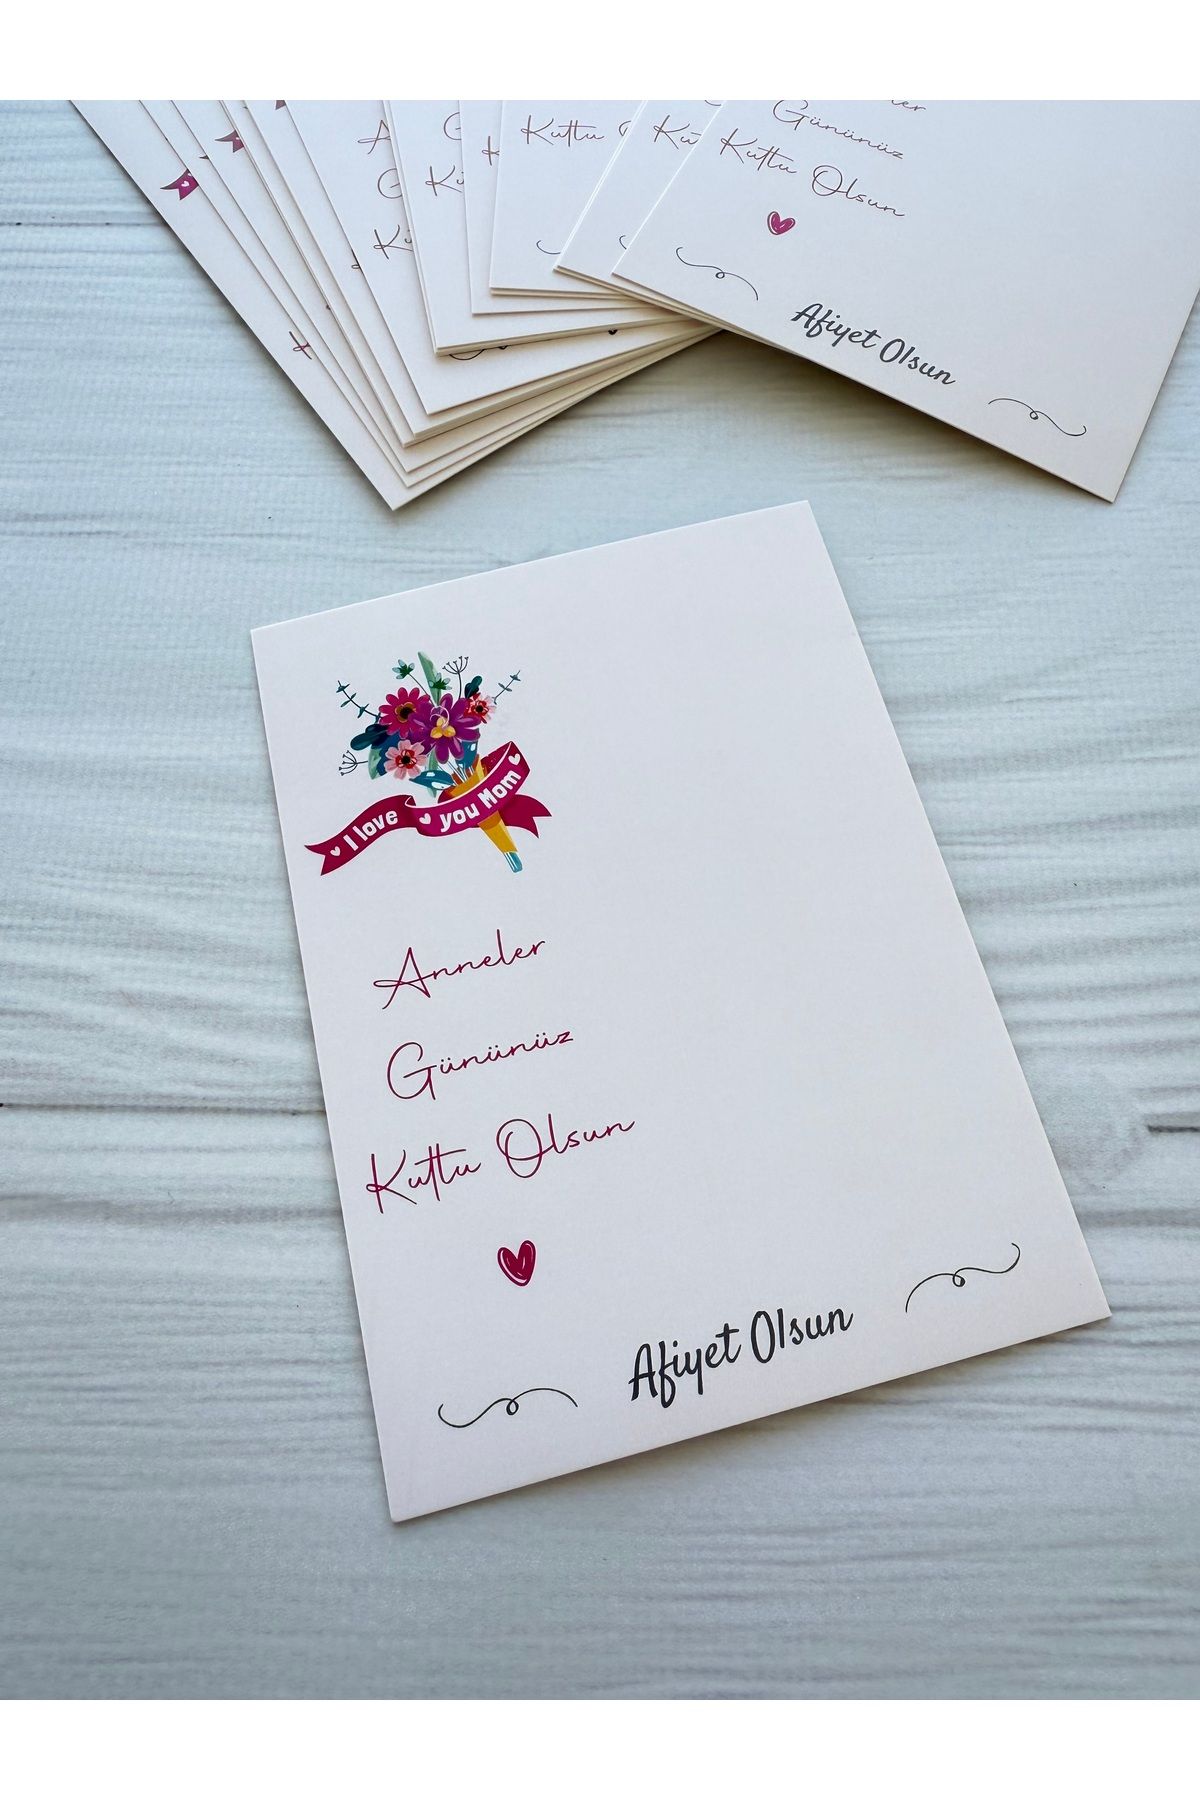 Gününüz
Kutlu Olsun
Afiyet Olsun
Kutlu
I love you Mom
Anneler
Gününüz
Kutlu Olsun
Afiyet Olsun